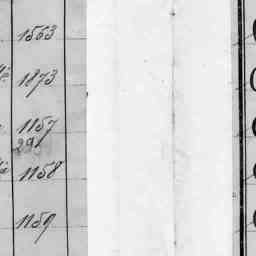 1553
1873
1157
29
1158
1159